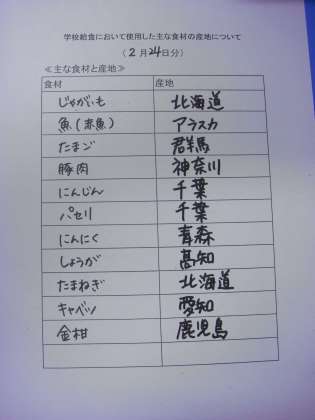 学校給食において使用した主な食材の産地について
（2月24日分）
≪主な食材と産地≫
食材 産地
じゃがいも 北海道
魚(赤魚) アラスカ
たまご 群馬
豚肉 神奈川
にんじん 千葉
パセリ 千葉
にんにく 青森
しょうが 高知
たまねぎ 北海道
キャベツ 愛知
金柑 鹿児島